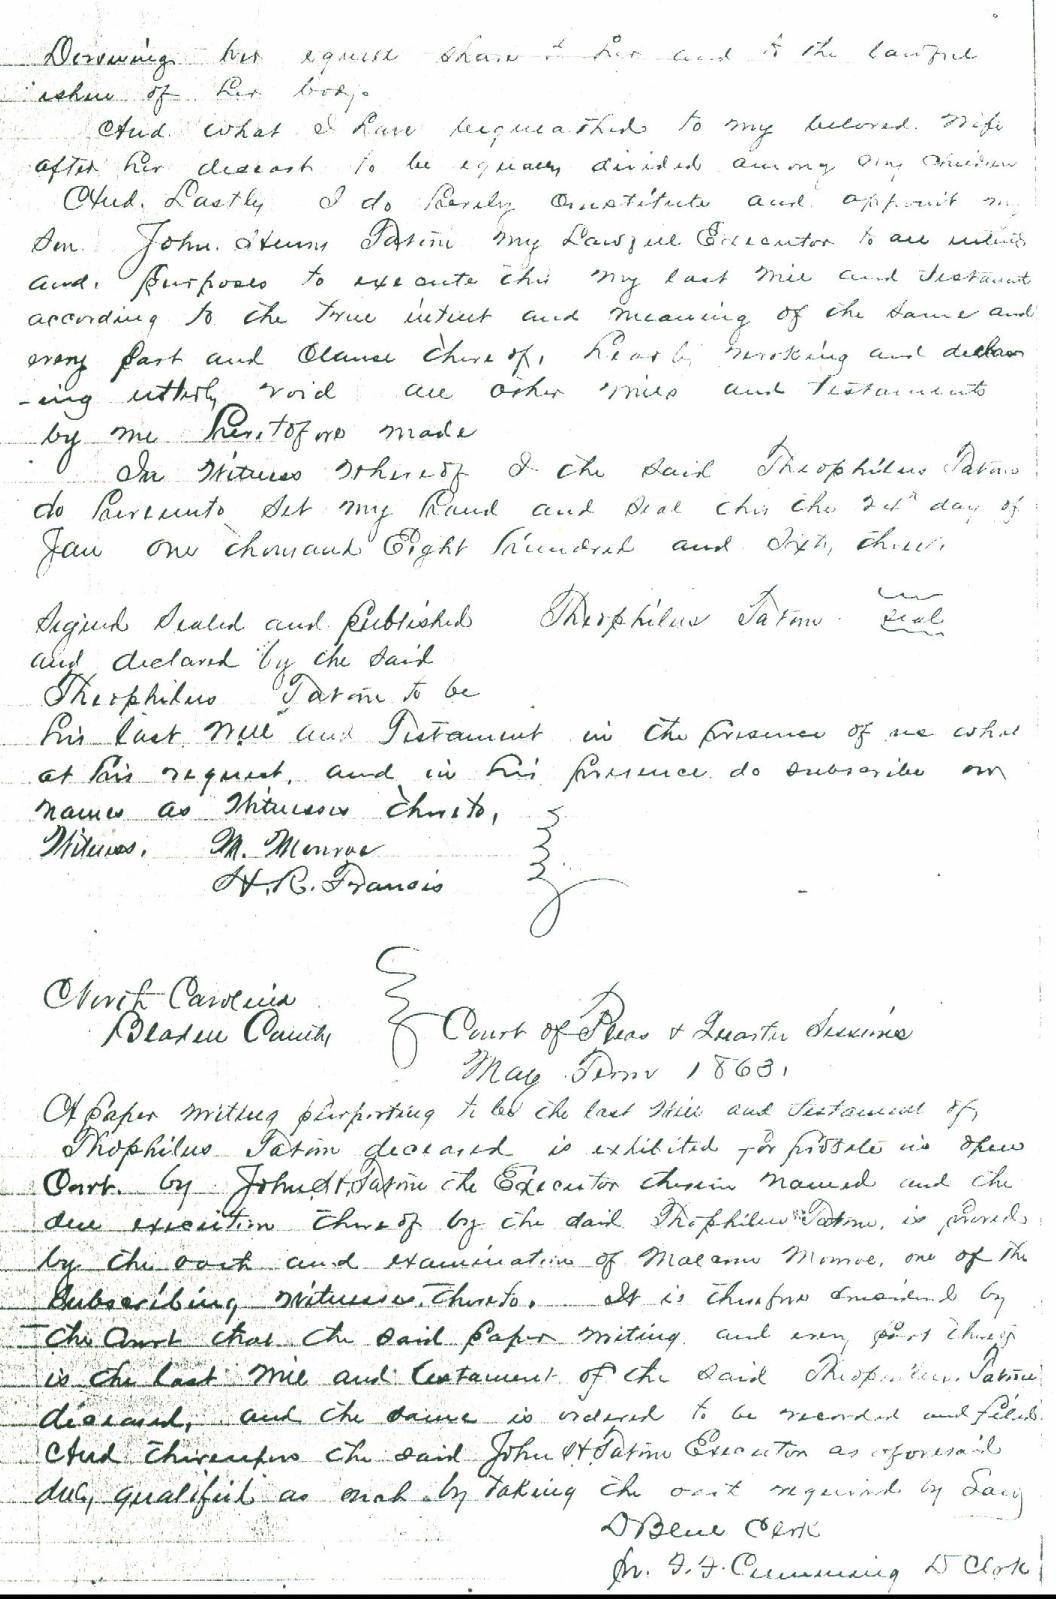 Deserving her equal share to her and to the lawful
ishue of her body.
And. what I have bequeathed to my beloved. Wife
after her deceast to be equaly divided among my children
And. Lastly I do hereby Constitute and appoint my
Son John. Henry Tatom my Lawful Executor to all intents
and. purposes to execute this my last Will and Testament
according to the true intent and meaning of the same and
every part and Clause thereof, hearby revoking and declar
-ing utterly void all other wills and Testaments
by me heretofore made
In Witness Whereof I the said Theophilus Tatom
do hereunto set my hand and seal this the day of
Jan one thousand Eight hundred and Sixty three.
Signed Sealed and published Theophilus Tatom seal
and declared by the said
Theophilus Tatom to be
his last Will and Testament in the presence of us who
at his request, and in his presence do subscribe our
names as Witnesses thereto,
Witness. M. Monroe
H. R. Francis
North Carolina
Bladen County Court of Pleas & Quarter Sessions
May Term 1863.
A Paper writing purporting to be the last Will and Testament of
Theophilus Tatom deceased is exhibited for probate in open
Court. by John H. Tatom the Executor therein named and the
due execution thereof by the said Theophilus Tatom, is proved
by the oath and examination of Malcom Monroe, one of the
Subscribing witnesses. thereto. It is therefore considered by
the Court that the said Paper writing and every part thereof
is the last Will and testament of the said Theophilus Tatom
diseased, and the same is ordered to be recorded and filed.
And thereupon the said John H Tatom Executor as aforesaid
duly qualified as such by taking the oath required by Law
D Blue Clerk
Cumming D Clerk